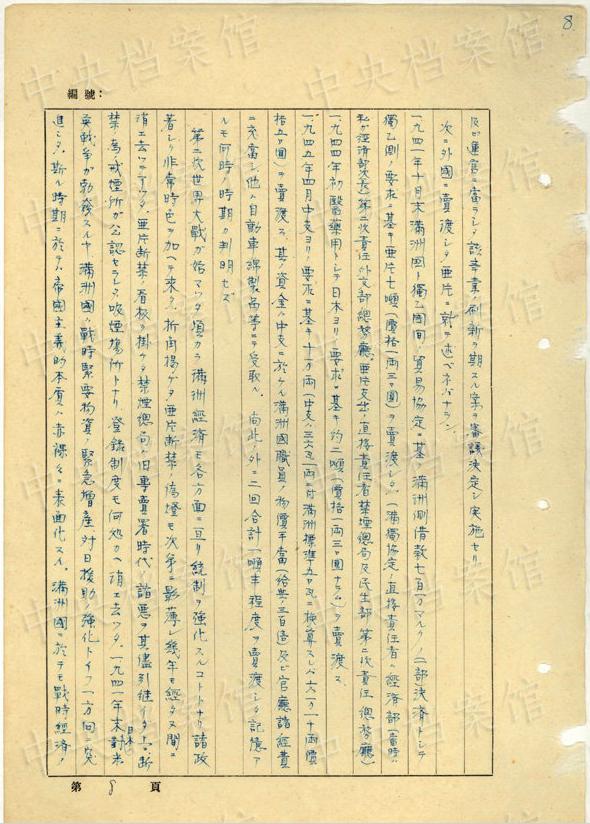 8
編號：
及ビ運官ニ富ラシメ該事業ノ刷新ヲ期スル等ヲ審議決定シ実施セリ
次ニ外國ニ賣渡シタ亜片ニ就テ述ベネバナラン、
一九四一年十月末満洲國ト獨乙國間ノ貿易協定ニ基キ満洲側借款七百万マルクノ(一部)決済トシテ
獨乙側ノ要求ニ基キ亜片七噸(價格一両三〇圓)ヲ賣渡シタ、(満獨協定ノ直接責任者ハ経済部(当時ハ
私ガ経済部次長)第二次責任外交部總務廳。亜片支出ノ直接責任者禁煙總局及民生部第二次責任總務廳)
一九四四年初醫藥用トシテ日本ヨリノ要求ニ基キ約二噸(價格一両三〇圓ナラム)ヲ賣渡ス、
一九四五年四月中支ヨリノ要求ニ基キ十万両(中支ハ三六瓦一両ニ付満洲標準五〇瓦ニ換算スレバ六一〇一十両價
格五〇圓)ヲ賣渡ス、其ノ資金ハ中支ニ於ケル満洲國職員ノ物價手當(給與三百倍)及ビ官廳諸経費
ニ充當シ他ハ自動車綿製品等ニテ受取ル、尚此ノ外ニ二回合計一噸半程度ヲ賣渡シタ記憶ア
ルモ何時ノ時期カ判明セズ
第二次世界大戰ガ始マツタ頃カラ満洲経済モ各方面ニ亘リ統制ヲ強化スルコトトナリ諸政
著シク非常時色ヲ加ヘテ來タ、折角揚ゲタ亜片断禁ノ偽燈モ次第ニ影薄レ幾年モ経タヌ間ニ
消エ去ツテイツタ、亜片断禁ノ看板ヲ掛ケタ禁煙總局ガ旧專賣署時代ノ諸悪ヲ其儘引継イダ上、断
禁ノ為ノ戒煙所ガ公認セラレタ吸煙場所トナリ登録制度モ何処カヘ消エ去ツタ、一九四一年末對米
英戦争ガ勃発スルヤ満洲國ハ戰時緊要物資ノ緊急増産対日援助ノ強化トイフ一方向ニ突
進シタ、斯ル時期ニ於テハ帝國主義的本質ハ赤裸々ニ表面化スル、満洲國ニ於テモ戰時経済ノ
日本ノ
第 8 頁
中央档案馆